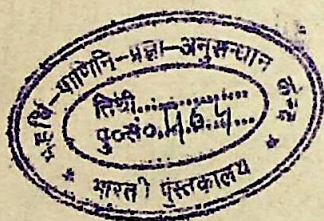 महर्षि-पाणिनि-प्रज्ञा-अनुसन्धान केन्द्र
तिथी..............
पु०सं०.1164......
* भारती पुस्तकालय *